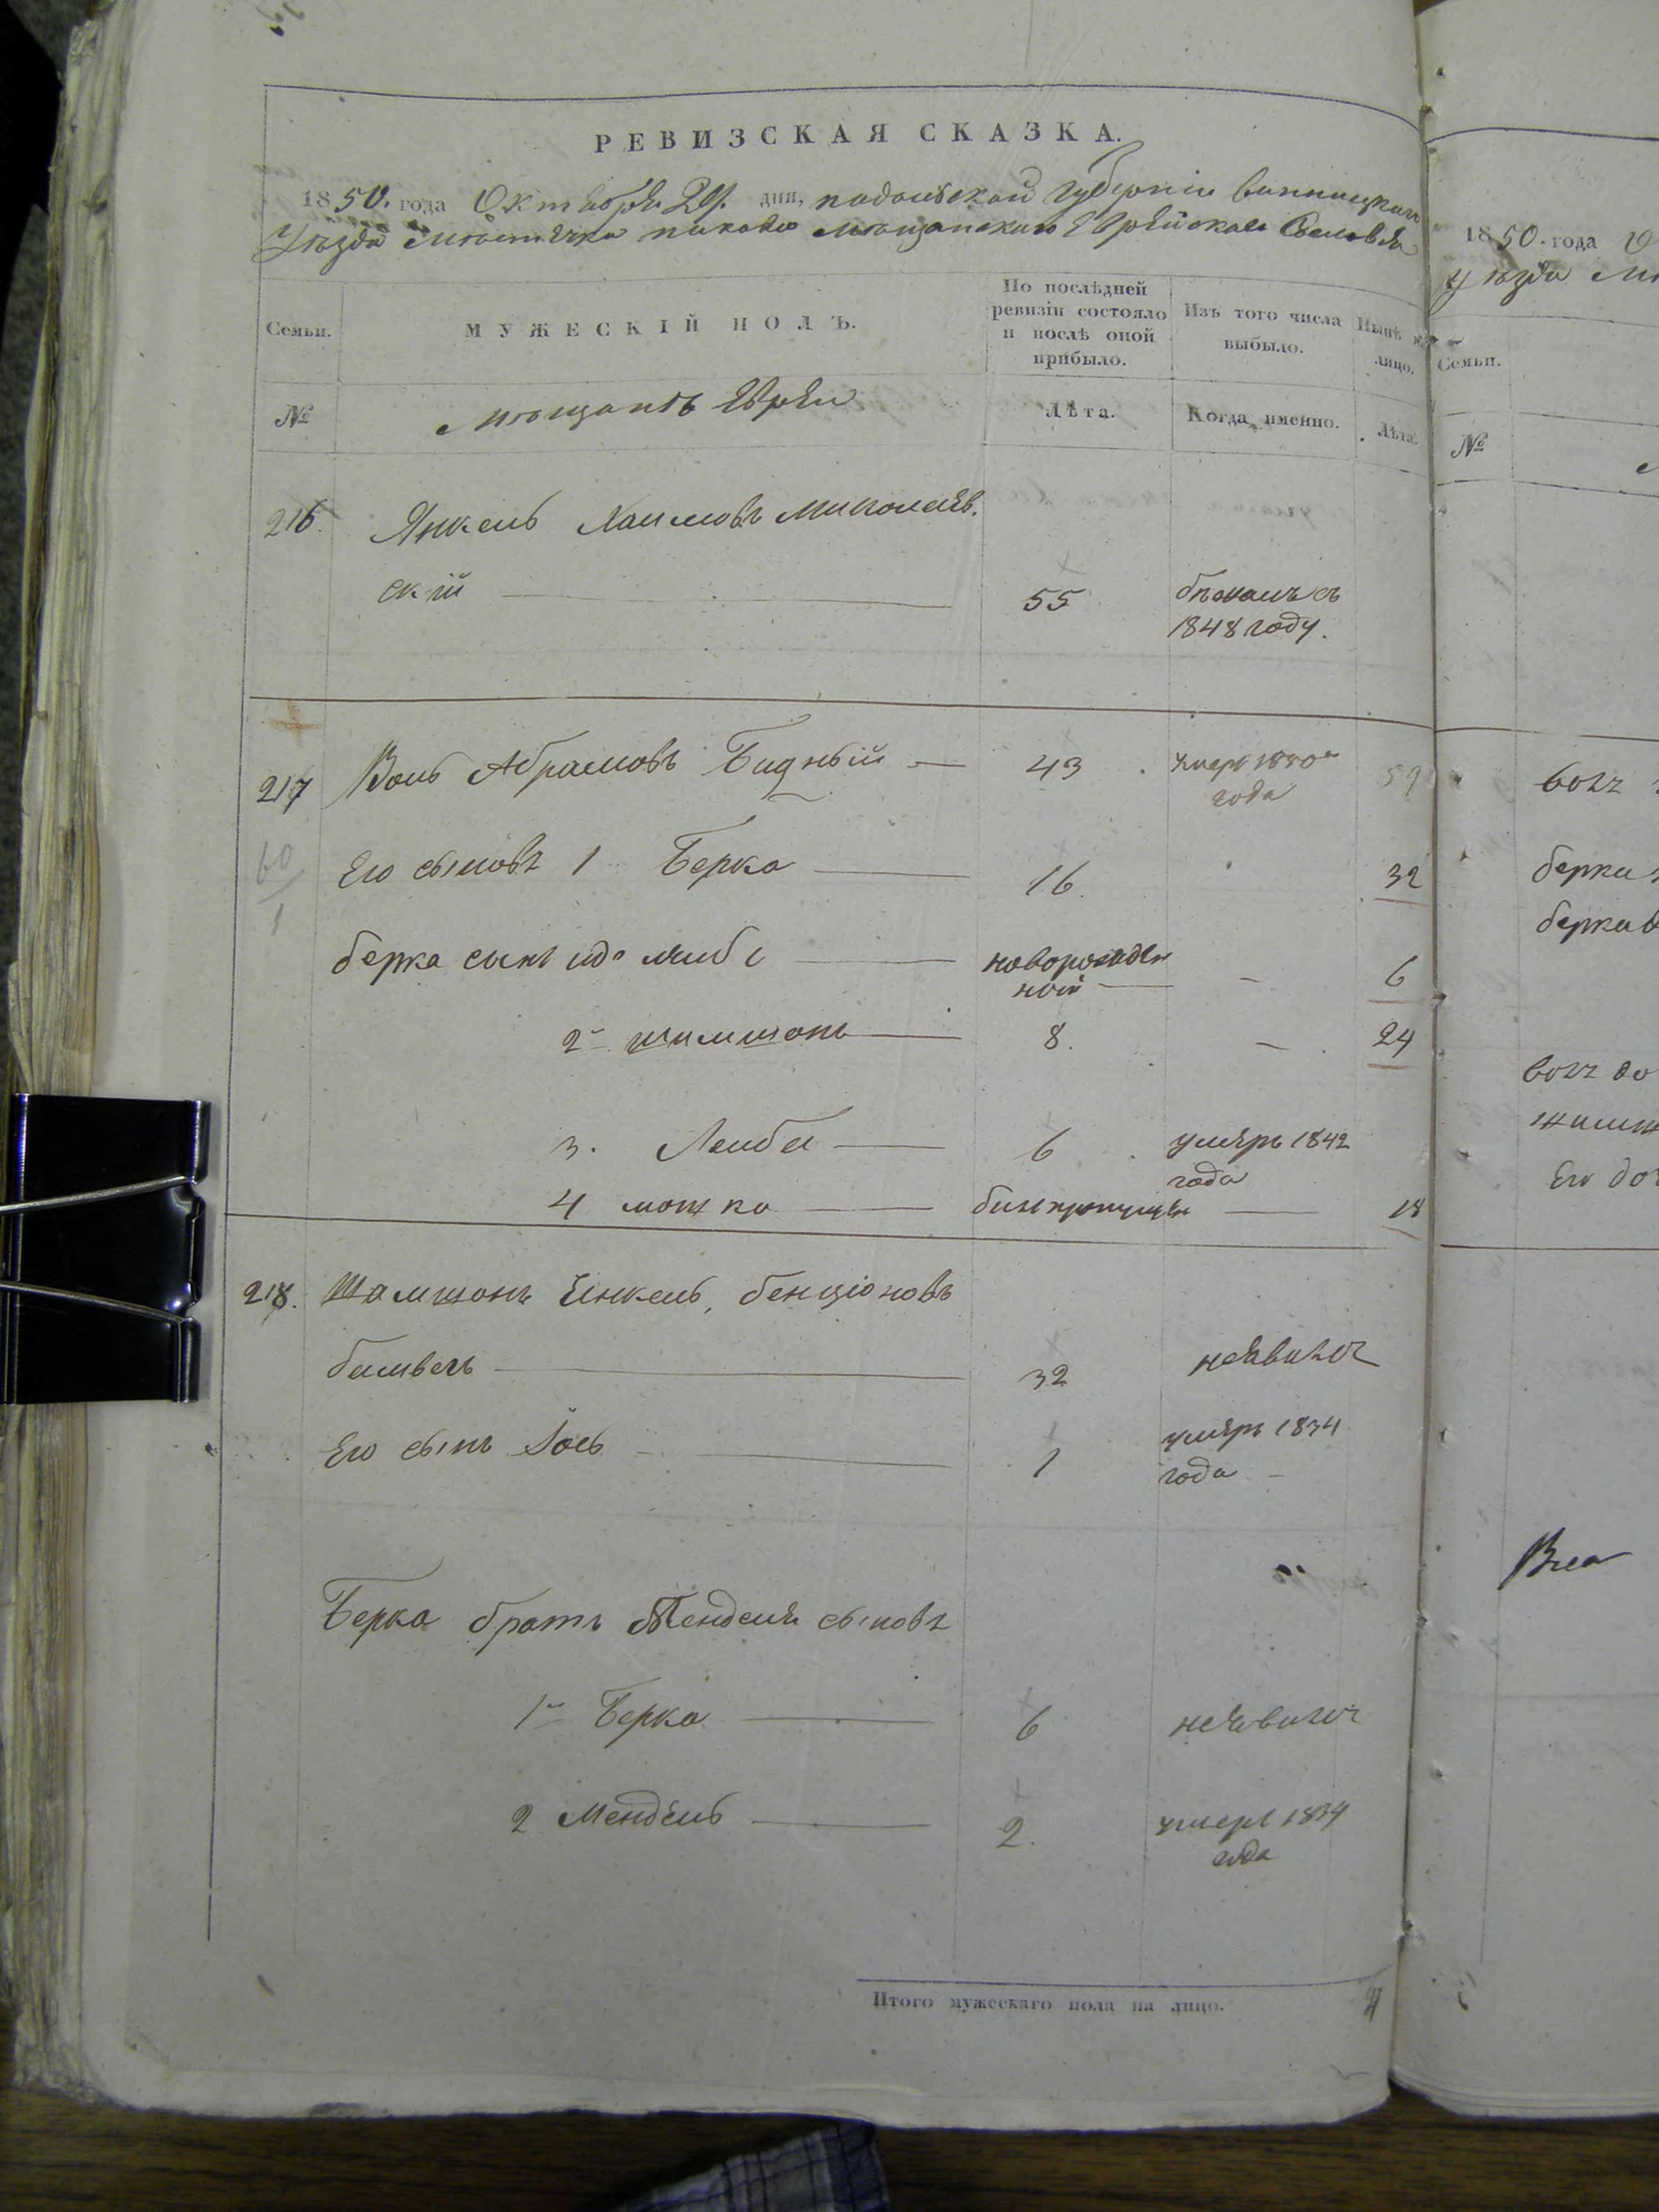 РЕВИЗСКАЯ СКАЗКА.
1850. года Октября 29. дня, подольской губерніи винницкаго
уѣзда мѣстечка пикова мѣщанскаго Еврейскаго
Семьи.
МУЖЕСКІЙ ПОЛЪ.
По послѣдней ревизіи состояло и послѣ оной прибыло.
Изъ того числа выбыло.
Нынѣ на лицо.
№
мѣщанъ Евреи
Лѣта.
Когда именно.
Лѣта.
216. Янкель Хаимовъ Миколаев.
скій 55 бѣжалъ съ
1848 году.
217 Воль Абрамовъ Бидный 43 умеръ 1850
года
60
1
Его сыновъ 1 Берка 16. 32
берка сынъ лейбъ новорожден
ной 6
2 шимшонъ 8. 24
3. Лейба 6 умеръ 1842
года
4 мошко былъ пропущен 18
218. Шамшонъ Янкель, бенціоновъ
32 неявился
Его сынъ Іось 1 умеръ 1834
года
Берка братъ Менделя сыновъ
1 Берка 6 неявился
2 Мендель 2. умеръ 1834
года
Итого мужескаго пола на лицо. 4
1850. года О
уѣзда
Семьи.
№
берки
берка
Его доч